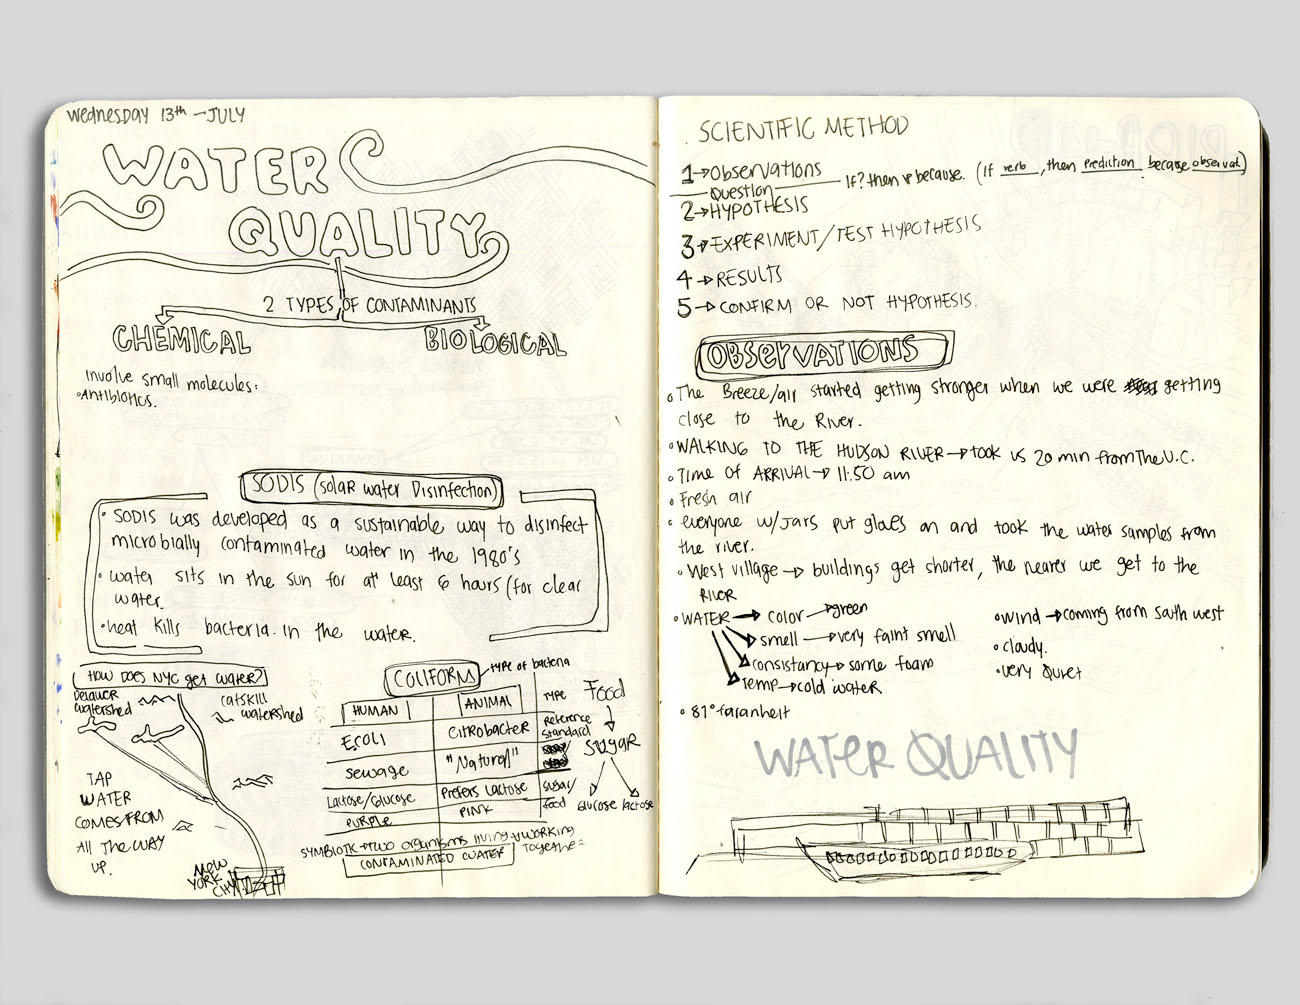 Wednesday 13th - JULY
WATER
QUALITY
2 TYPES OF CONTAMINANTS
CHEMICAL
BIOLOGICAL
Involve small molecules:
•Antibiotics.
SODIS (solar water Disinfection)
• SODIS was developed as a sustainable way to disinfect
microbially contaminated water in the 1980's
• water sits in the sun for at least 6 hours (for clear
water.
• heat kills bacteria in the water.
HOW DOES NYC get water?
watershed
catskill
watershed
TAP
WATER
COMES FROM
All The WAY
UP.
NEW
YORK
CITY
COLIFORM
type of bacteria
HUMAN
ANIMAL
TYPE
E.COLI
CITROBACTER
Reference
standard
sewage
"Natural"
Lactose/Glucose
Prefers Lactose
sugar/
food
PURPLE
PINK
Food
sugar
Glucose
lactose
SYMBIOTIC → two organisms living & working
together
CONTAMINATED WATER
SCIENTIFIC METHOD
1→Observations
Question
If? then & because. (If verb, then prediction because observat.)
2→HYPOTHESIS
3→EXPERIMENT/TEST HYPOTHESIS
4→RESULTS
5→CONFIRM OR NOT HYPOTHESIS.
OBSERVATIONS
• The Breeze/air started getting stronger when we were getting
close to the River.
• WALKING TO THE HUDSON RIVER → took us 20 min from The U.C.
• Time of ARRIVAL → 11:50 am
• Fresh air
• everyone w/Jars put gloves on and took the water samples from
the river.
• West village → buildings get shorter, the nearer we get to the
RIVER
• WATER → color → green
smell → very faint smell
consistancy → some foam
Temp → cold water
• wind → coming from south west
• cloudy.
• very Quiet
• 81° faranheit
WATER QUALITY